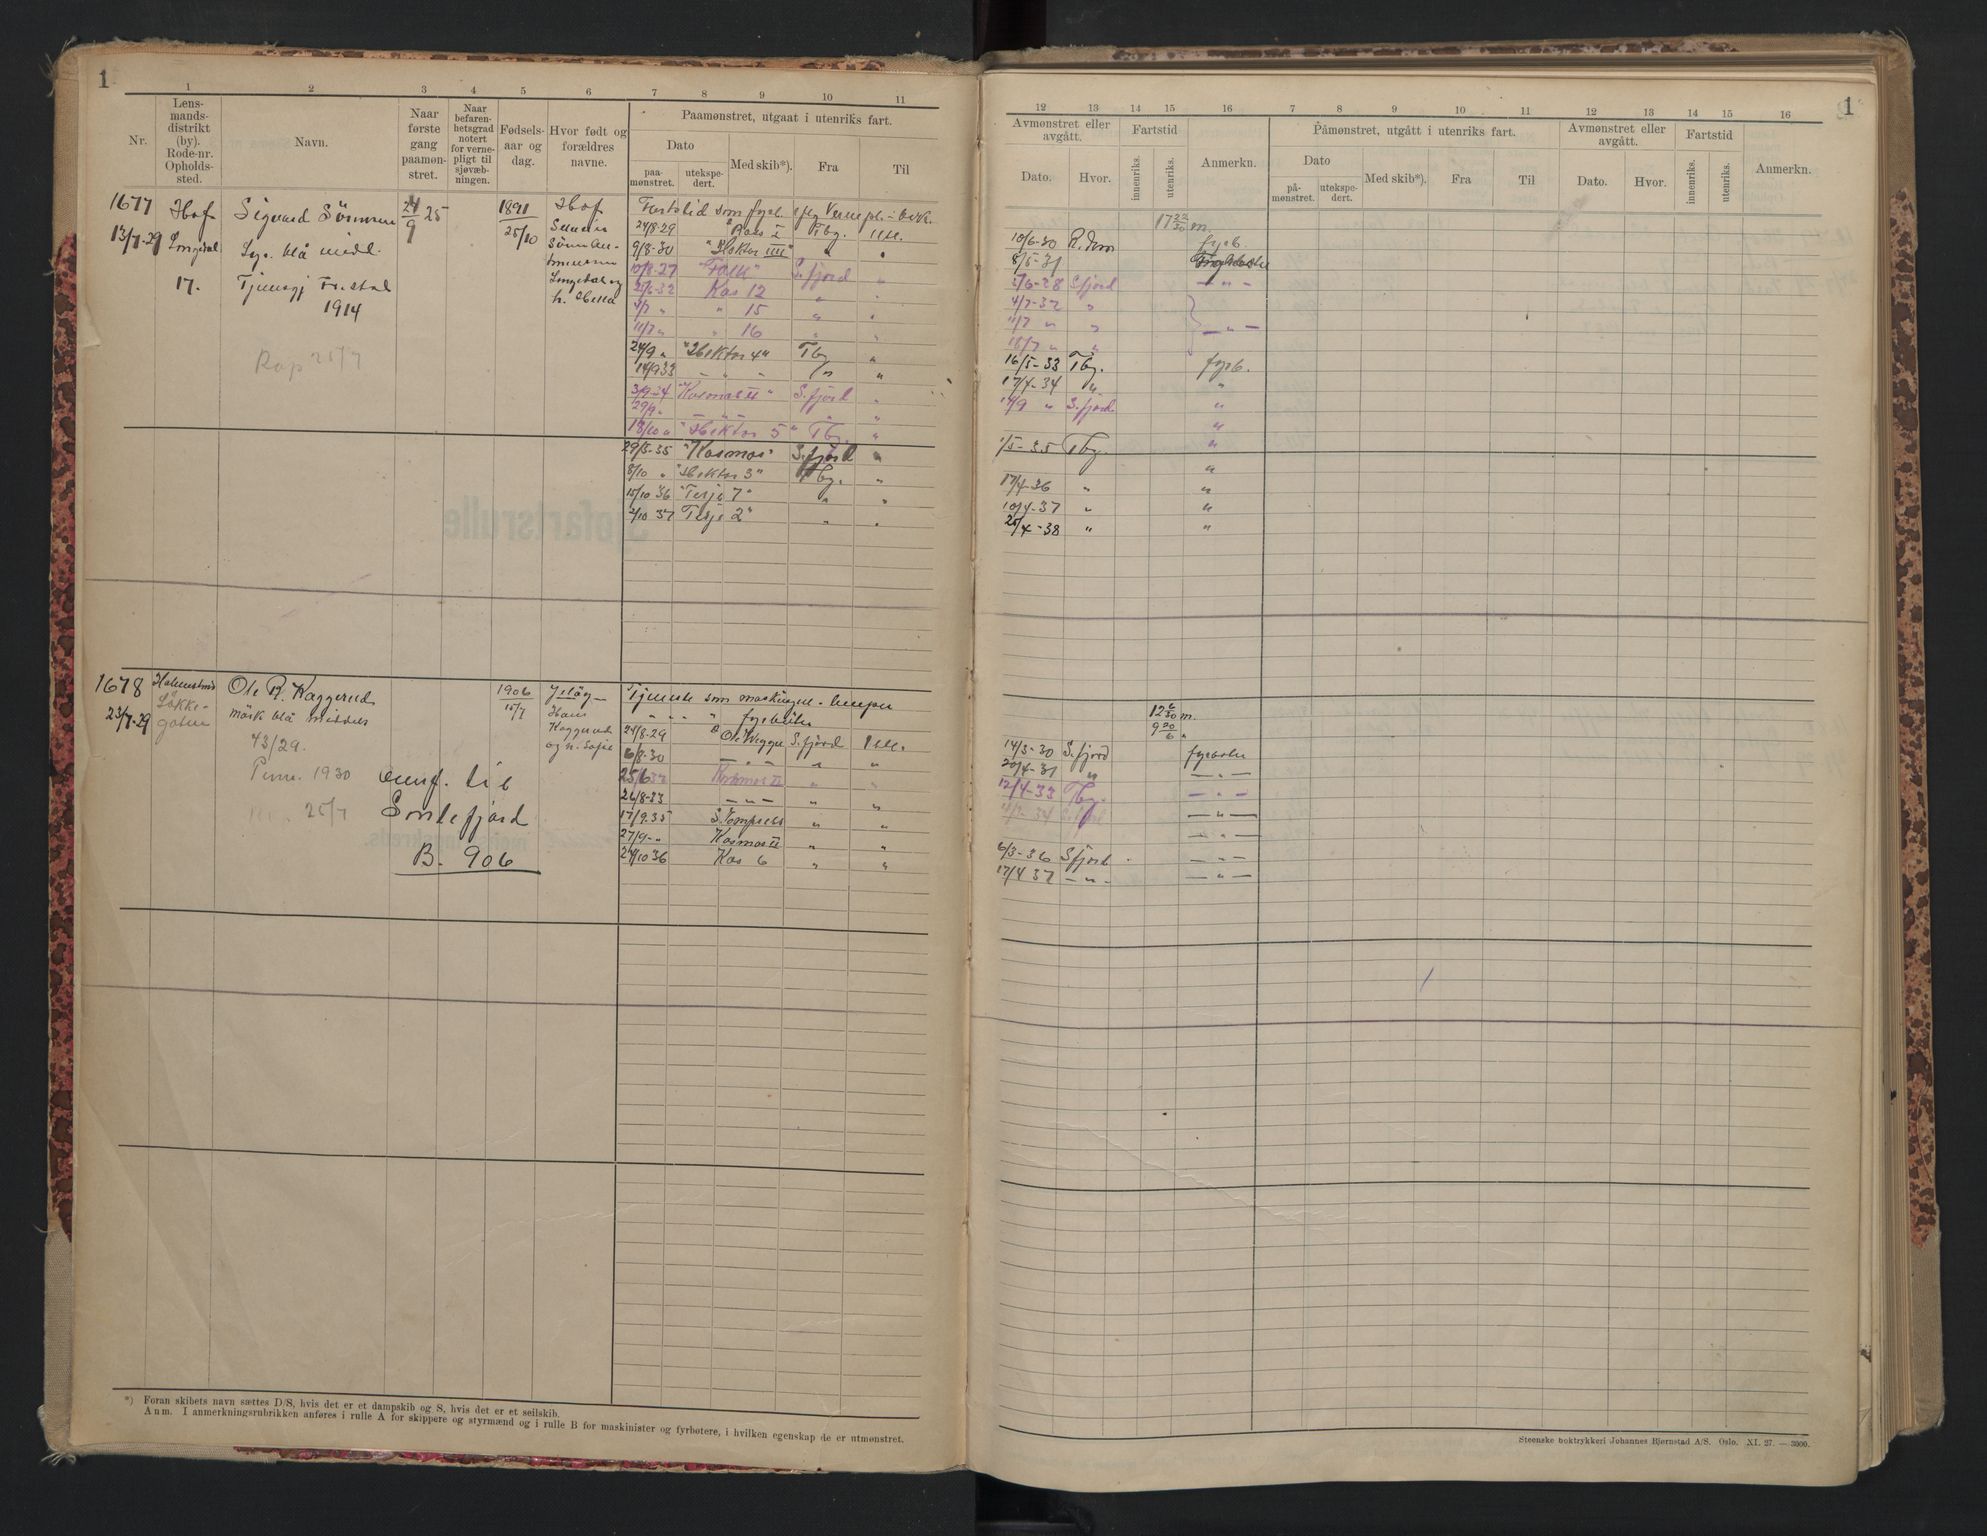 1
1 2 3 4 5 6 7 8 9 10 11
Nr.
Lens-
mands-
distrikt
(by).
Rode-nr.
Opholds-
sted.
Navn.
Naar
første
gang
paamøn-
stret.
Naar
befaren-
hetsgrad
notert
for verne-
pligt til
sjøvæb-
ningen.
Fødsels-
aar og
dag.
Hvor født og
forældres
navne.
Paamønstret, utgaat i utenriks fart.
Dato
paa-
mønstret.
utekspe-
dert.
Med skib*).
Fra
Til
1677
13/7-29
Hof
17.
Sigvard
blå midd.
1914
Rap 25/7
24/9 25
1891
25/10
Hof
Fartstid som fyrb.
24/8-29 Ross I Tbg.
9/8-30 "Hektor III" "
10/8-27 "Falk" S.fjord "
25/6-32 Kos 12 " "
4/7 " " 15 " "
11/7 " " 16 " "
24/9 " "Hektor 4" Tbg "
14/9 33 — " — "
3/9-34 "Kosmos II" S.fjord "
29/9 " — " — " "
18/10 " "Hektor 5" Tbg. "
29/5-35 "Kosmos" S.fjord "
8/10 " "Hektor 3" Tbg. "
15/10 36 "Terje 7" " "
2/10 37 Terje 2" " "
1678
23/7-29
Ole R. Kaggerud
mörk blå middels
43/29.
1930
25/7
overf. til
Sandefjord
B. 906
1906
15/7
Jelöy
Hans
Kaggerud
og h. Sofie
Tjeneste som
" " " " fyrböter
24/8-29 Ole Wegger S.fjord
6/8-30 — " — " "
25/6 32 Kosmos II " "
26/8-33 — " — " "
17/9.35 " "
27/9- " Kosmos II " "
24/10 36 Kos 6 " "
*) Foran skibets navn sættes D/S, hvis det er et dampskib og S, hvis det er et seilskib.
Anm. I anmerkningsrubrikken anføres i rulle A for skippere og styrmænd og i rulle B for maskinister og fyrbøtere, i hvilken egenskap de er utmønstret.
1
12 13 14 15 16 7 8 9 10 11 12 13 14 15 16
Avmønstret eller
avgått.
Dato.
Hvor.
Fartstid
innenriks.
utenriks.
Anmerkn.
Påmønstret, utgått i utenriks fart.
Dato
på-
mønstret.
utekspe-
dert.
Med skib*).
Fra
Til
Avmønstret eller
avgått.
Dato.
Hvor.
Fartstid
innenriks.
utenriks.
Anmerkn.
17 22/30 m.
10/6-30 R.dam fyrb.
8/5-31
2/6-28 S.fjord — " —
4/7-32 "
11/7 " " — " —
18/7 " "
16/5-33 Tbg. fyrb.
17/4-34 " "
17/9 " S.fjord "
"
1/5-35 Tbg. "
"
17/4-36 " "
10/4-37 " "
25/4-38 " "
12 6/30 m.
9 20/6 "
14/3-30 S.fjord fyrböter
20/4-31 " — " —
12/4-33 Tbg. — " —
— " —
— " —
6/3-36 Sfjord — " —
17/4 37 — " — — " —
Steenske boktrykkeri Johannes Bjørnstad A/S. Oslo. XI. 27. — 3000.